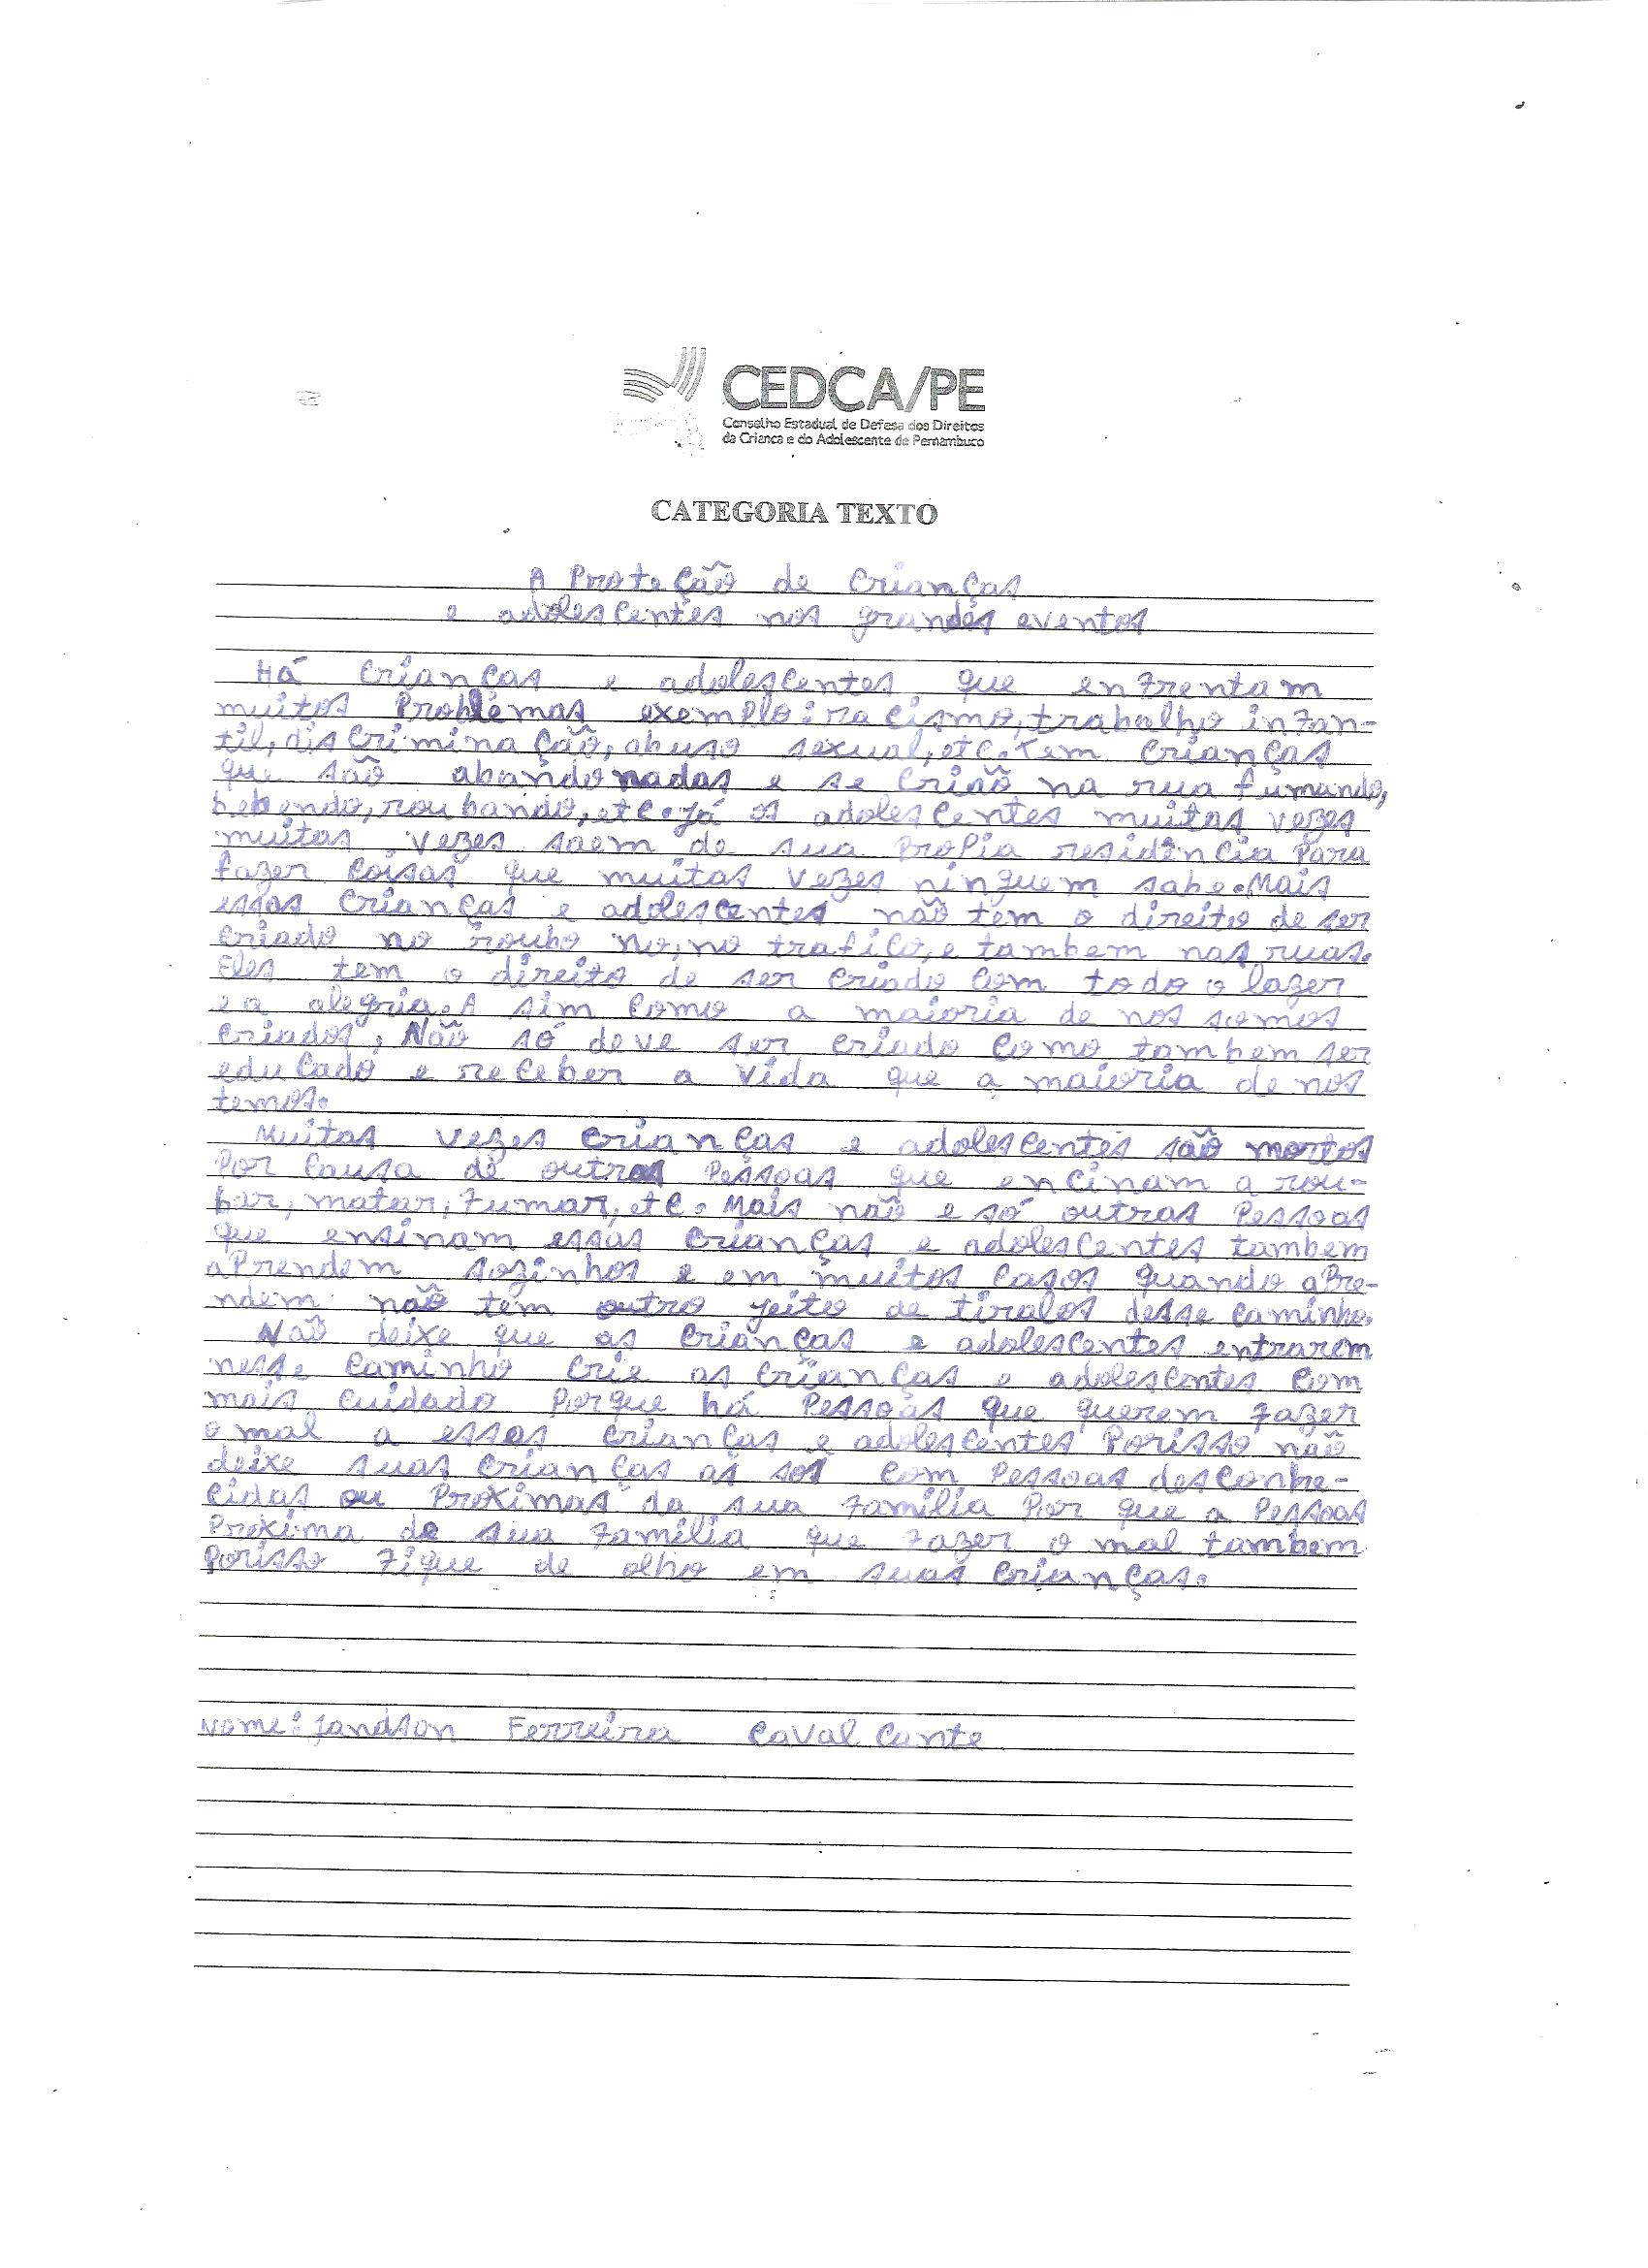 CEDCA/PE
Conselho Estadual de Defesa dos Direitos
da Criança e do Adolescente de Pernambuco
CATEGORIA TEXTO
A Proteção de crianças
e adolescentes nos grandes eventos
Há crianças e adolescentes que enfrentam
muitos Problemas exemplo: racismo, trabalho infan-
til, discriminação, abuso sexual, etc. Tem crianças
que são abandonadas e se crião na rua fumando,
bebendo, roubando, etc. Já os adolescentes muitas vezes
muitas vezes saem de sua Propia residência Para
fazer coisas que muitas vezes ninguem sabe. Mais
essas crianças e adolescentes não tem o direito de ser
criado no roubo no, no trafico, e tambem nas ruas.
Eles tem o direito de ser criado com todo o lazer
e a alegria. A sim como a maioria de nos somos
criados, Não só deve ser criado como tambem ser
educado e receber a vida que a maioria de nos
temos.
Muitas vezes crianças e adolescentes são mortos
Por causa de outras Pessoas que encinam a rou-
bar, matar, fumar, etc. Mais não e só outras Pessoas
que ensinam essas crianças e adolescentes tambem
aPrendem sozinhos e em muitos casos quando aPre-
ndem não tem outro jeito de tiralos desse caminho.
Não deixe que as crianças e adolescentes entrarem
nesse caminho crie as crianças e adolescentes com
mais cuidado Porque há Pessoas que querem fazer
o mal a essas crianças e adolescentes Porisso não
deixe suas crianças as sos com Pessoas desconhe-
cidas ou Proximas da sua familia Por que a Pessoas
Proxima de sua familia que fazer o mal tambem
Porisso fique de olho em suas crianças.
Nome: Jandson Ferreira Cavalcante